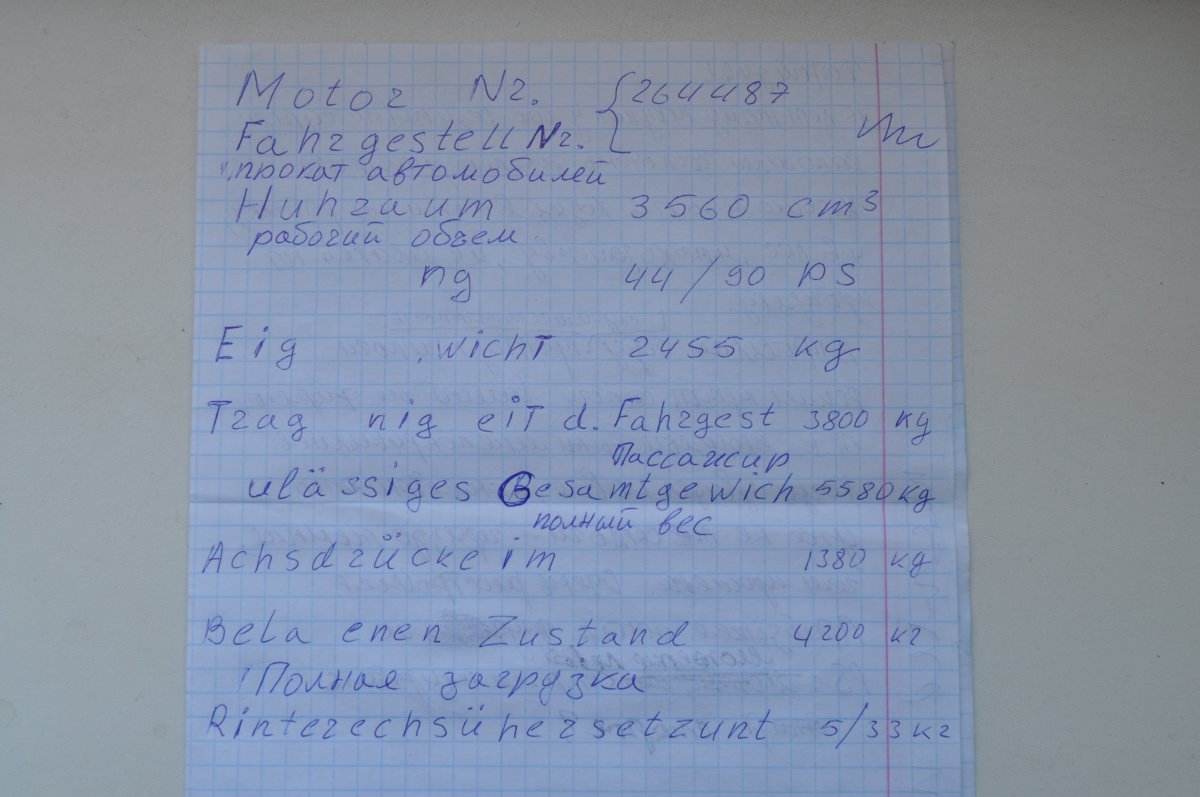 Motor Nr. 264487
Fahrgestell Nr.
прокат автомобилей
Huhraum 3560 cm³
рабочий объем
ng 44/90 PS
Eig wicht 2455 kg
Trag nig eit d. Fahrgest 3800 kg
Пассажир
ulässiges Gesamtgewich 5580 kg
полный вес
Achsdrücke im 1380 kg
Bela enen Zustand 4200 кг
Полная загрузка
Rinterechsühersetzunt 5/33 кг